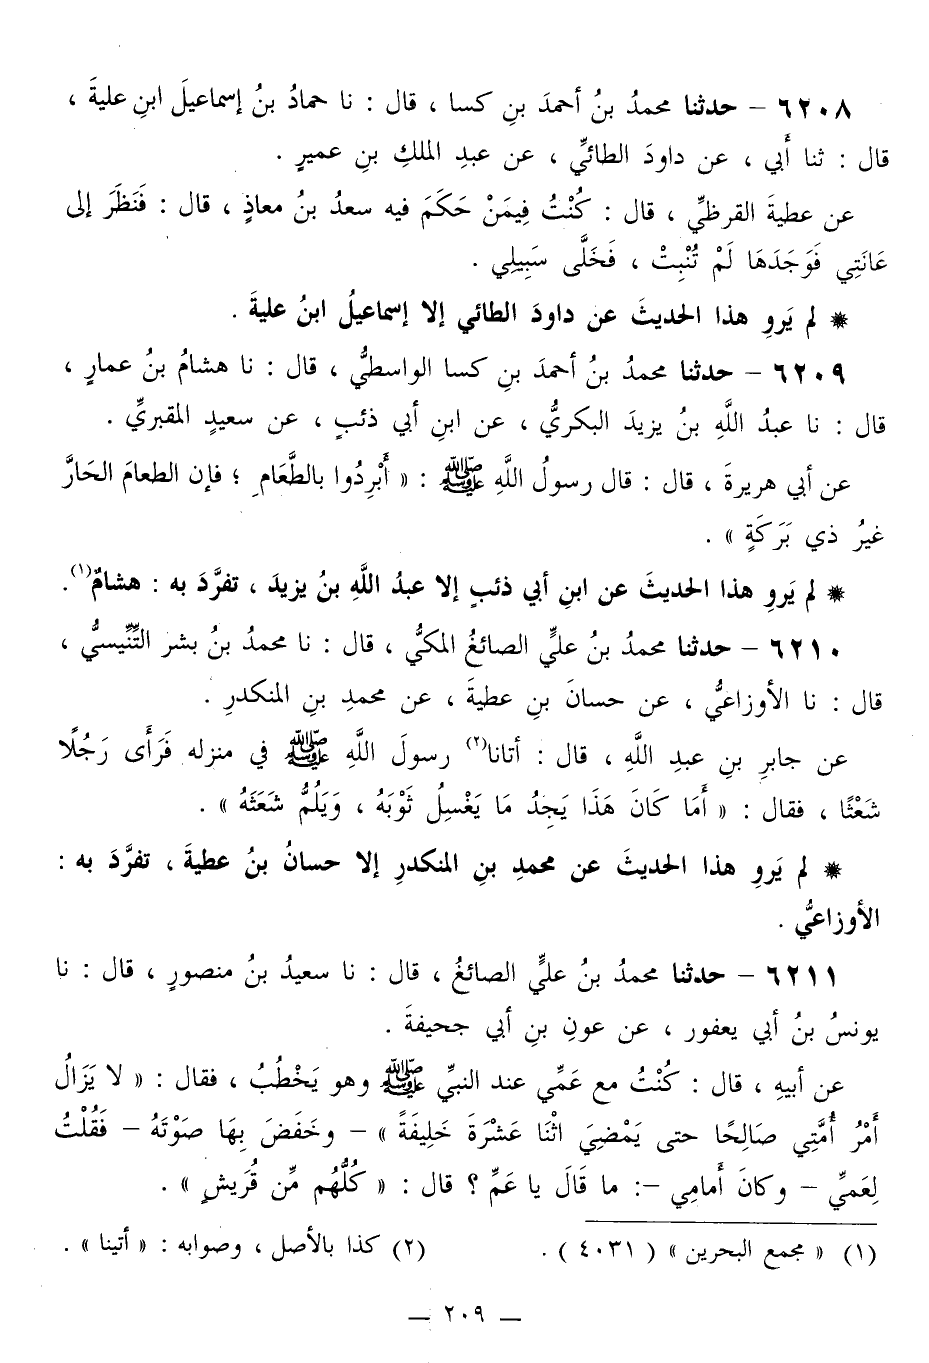 ٦٢٠٨ – حدثنا محمدُ بنُ أحمدَ بنِ كسا ، قال : نا حمادُ بنُ إسماعيلَ ابنِ عليةَ ،
قال : ثنا أَبي ، عن داودَ الطائيِّ ، عن عبدِ الملكِ بنِ عميرٍ .
عن عطيةَ القرظيِّ ، قال : كُنْتُ فِيمَنْ حَكَمَ فيه سعدُ بنُ معاذٍ ، قال : فَنَظَرَ إلى
عَانَتِي فَوَجَدَهَا لَمْ تُنْبِتْ ، فَخَلَّى سَبِيلِي .
* لم يَروِ هذا الحديثَ عن داودَ الطائي إلا إسماعيلُ ابنُ عليةَ .
٦٢٠٩ – حدثنا محمدُ بنُ أحمدَ بنِ كسا الواسطيُّ ، قال : نا هشامُ بنُ عمارٍ ،
قال : نا عبدُ اللَّهِ بنُ يزيدَ البكريُّ ، عن ابنِ أبي ذئبٍ ، عن سعيدٍ المقبريِّ .
عن أبي هريرةَ ، قال : قال رسولُ اللَّهِ ﷺ : « أَبْرِدُوا بالطَّعَامِ ؛ فإن الطعامَ الحَارَّ
غيرُ ذي بَرَكَةٍ » .
* لم يَروِ هذا الحديثَ عن ابنِ أبي ذئبٍ إلا عبدُ اللَّهِ بنُ يزيدَ ، تفرَّدَ به : هشامٌ(١).
٦٢١٠ – حدثنا محمدُ بنُ عليٍّ الصائغُ المكيُّ ، قال : نا محمدُ بنُ بشر التِّنِّيسيُّ ،
قال : نا الأوزاعيُّ ، عن حسانَ بنِ عطيةَ ، عن محمدِ بنِ المنكدرِ .
عن جابرِ بنِ عبدِ اللَّهِ ، قال : أتانا(٢) رسولَ اللَّهِ ﷺ في منزله فَرَأَى رَجُلًا
شَعْثًا ، فقال : « أَمَا كَانَ هَذَا يَجِدُ مَا يَغْسِلُ ثَوْبَهُ ، وَيَلُمُّ شَعَثَهُ » .
* لم يَروِ هذا الحديثَ عن محمدِ بنِ المنكدرِ إلا حسانُ بنُ عطيةَ ، تفرَّدَ به :
الأوزاعيُّ .
٦٢١١ – حدثنا محمدُ بنُ عليٍّ الصائغُ ، قال : نا سعيدُ بنُ منصورٍ ، قال : نا
يونسُ بنُ أبي يعفور ، عن عونِ بنِ أبي جحيفةَ .
عن أبيهِ ، قال : كُنْتُ مع عَمِّي عند النبيِّ ﷺ وهو يَخْطُبُ ، فقال : « لا يَزَالُ
أَمْرُ أُمَّتِي صَالِحًا حتى يَمْضِيَ اثْنَا عَشْرَةَ خَلِيفَةً » – وخَفَضَ بِهَا صَوْتَهُ – فَقُلْتُ
لِعَمِّي – وكانَ أَمامِي –: ما قَالَ يا عَمِّ ؟ قال : « كُلُّهُم مِّن قُرَيشٍ » .
(١) « مجمع البحرين » ( ٤٠٣١ ) . (٢) كذا بالأصل ، وصوابه : « أتينا » .
– ٢٠٩ –